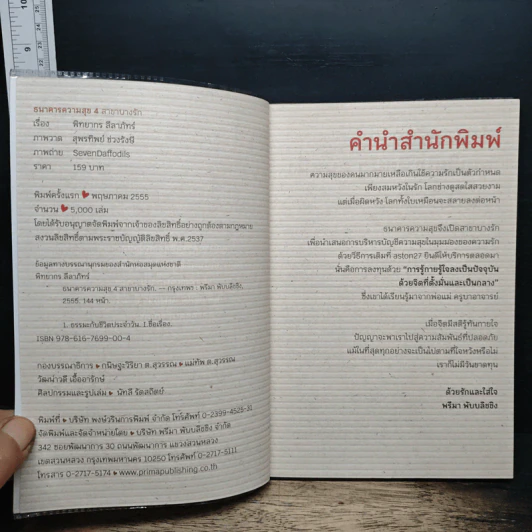 ธนาคารความสุข 4 สาขาบางรัก
เรื่อง พิทยากร ลีลาภัทร์
ภาพวาด สุพรทิพย์ ช่วงรังษี
ภาพถ่าย SevenDaffodils
ราคา 159 บาท
พิมพ์ครั้งแรก พฤษภาคม 2555
จำนวน 5,000 เล่ม
โดยได้รับอนุญาตจัดพิมพ์จากเจ้าของลิขสิทธิ์อย่างถูกต้องตามกฎหมาย
สงวนลิขสิทธิ์ตามพระราชบัญญัติลิขสิทธิ์ พ.ศ.2537
ข้อมูลทางบรรณานุกรมของสำนักหอสมุดแห่งชาติ
พิทยากร ลีลาภัทร์
ธนาคารความสุข 4 สาขาบางรัก. — กรุงเทพฯ : พรีมา พับบลิชชิง,
2555. 144 หน้า.
1. ธรรมกับชีวิตประจำวัน. I.ชื่อเรื่อง.
ISBN 978-616-7699-00-4
กองบรรณาธิการ ▸ กนิษฐะวิริยา ต.สุวรรณ ▸ แม่ทัพ ต.สุวรรณ
วัฒน์าวดี เอื้ออารักษ์
ศิลปกรรมและรูปเล่ม ▸ นัทลี รัดสถิตย์
พิมพ์ที่ ▸ บริษัท พงษ์วรินการพิมพ์ จำกัด โทรศัพท์ 0-2399-4525-31
จัดพิมพ์และจัดจำหน่ายโดย ▸ บริษัท พรีมา พับบลิชชิง จำกัด
342 ซอยพัฒนาการ 30 ถนนพัฒนาการ แขวงสวนหลวง
เขตสวนหลวง กรุงเทพมหานคร 10250 โทรศัพท์ 0-2717-5111
โทรสาร 0-2717-5174 ▸ www.primapublishing.co.th
คำนำสำนักพิมพ์
ความสุขของคนมากมายเหลือเกินใช้ความรักเป็นตัวกำหนด
เพียงสมหวังในรัก โลกช่างดูสดใสสวยงาม
แต่เมื่อผิดหวัง โลกทั้งใบเหมือนจะสลายลงต่อหน้า
ธนาคารความสุขจึงเปิดสาขาบางรัก
เพื่อนำเสนอการบริหารบัญชีความสุขในมุมมองของความรัก
ด้วยวิธีการเดิมที่ aston27 ยินดีให้บริการตลอดมา
นั่นคือการลงทุนด้วย "การรู้กายรู้ใจลงเป็นปัจจุบัน
ด้วยจิตที่ตั้งมั่นและเป็นกลาง"
ซึ่งเขาได้เรียนรู้มาจากพ่อแม่ ครูบาอาจารย์
เมื่อจิตมีสติรู้ทันกายใจ
ปัญญาจะพาเราไปสู่ความสัมพันธ์ที่ปลอดภัย
แม้ในที่สุดทุกอย่างจะเป็นไปตามที่ใจหวังหรือไม่
เราก็ไม่มีวันขาดทุน
ด้วยรักและใส่ใจ
พรีมา พับบลิชชิง